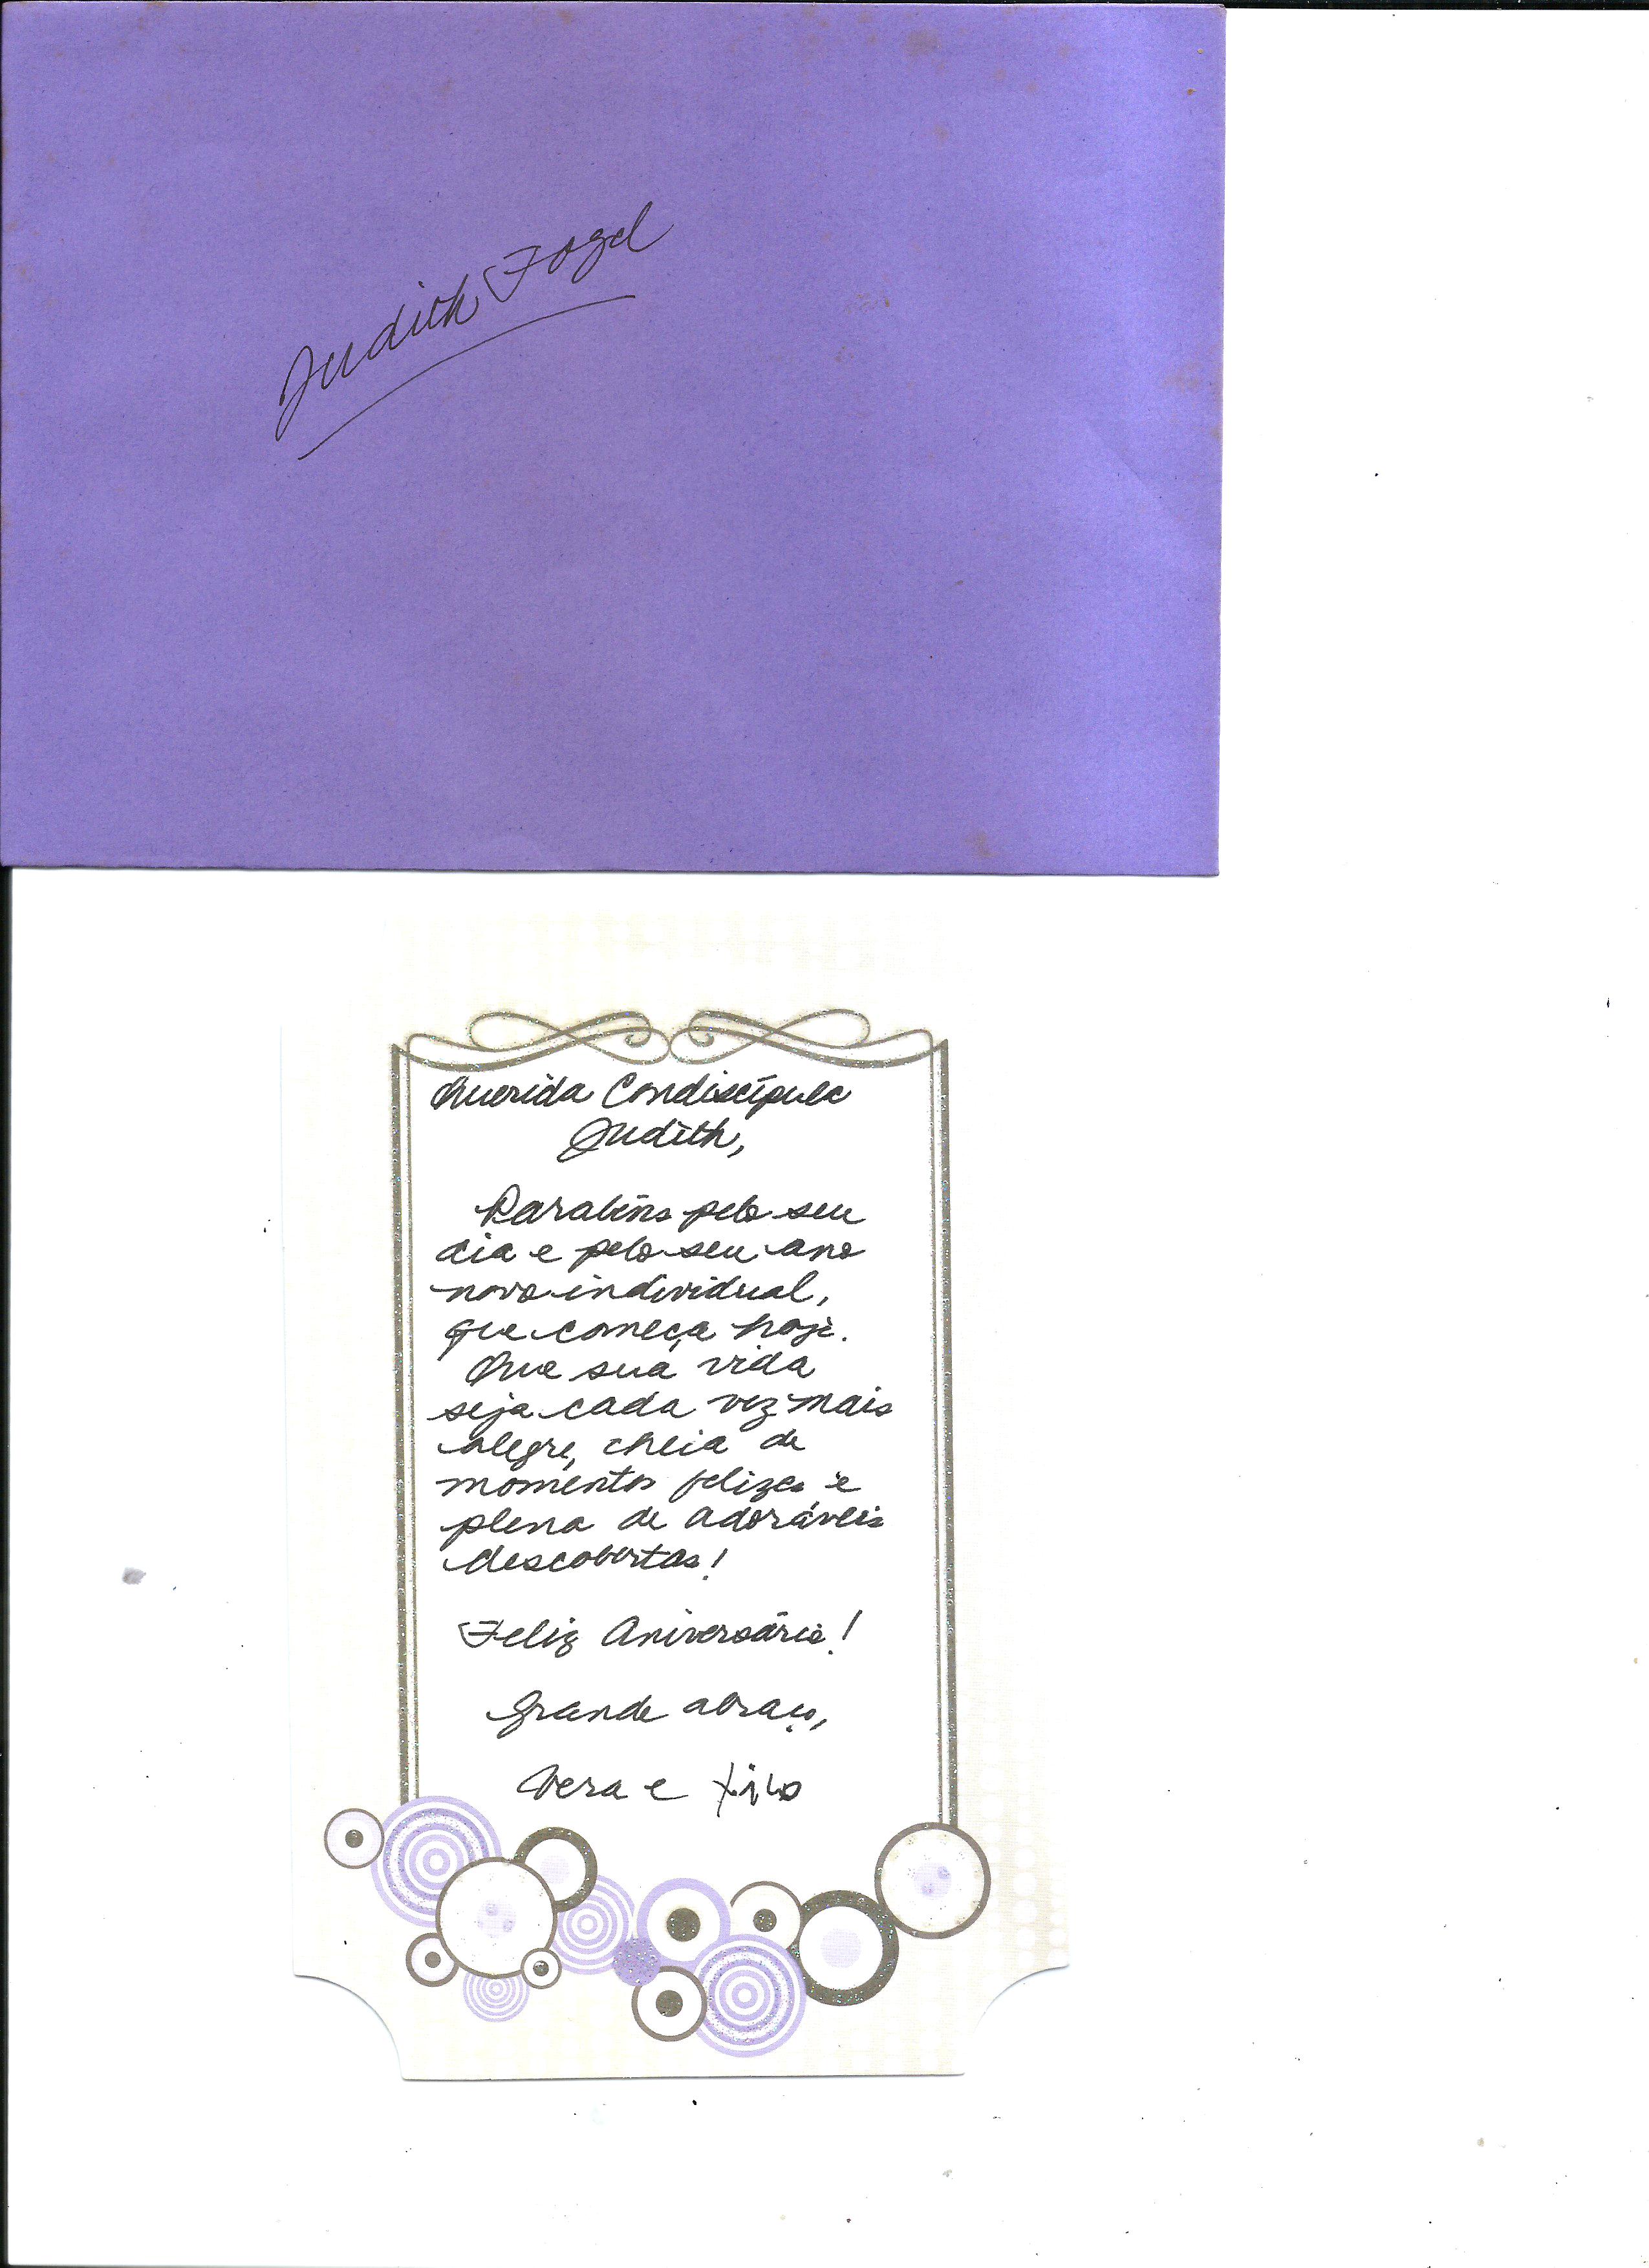 Judith Fogel
Querida Condiscípula
Judith,
Parabéns pelo seu
dia e pelo seu ano
novo individual,
que começa hoje.
Que sua vida
seja cada vez mais
alegre, cheia de
momentos felizes e
plena de adoráveis
descobertas!
Feliz Aniversário!
Grande abraço,
Vera e